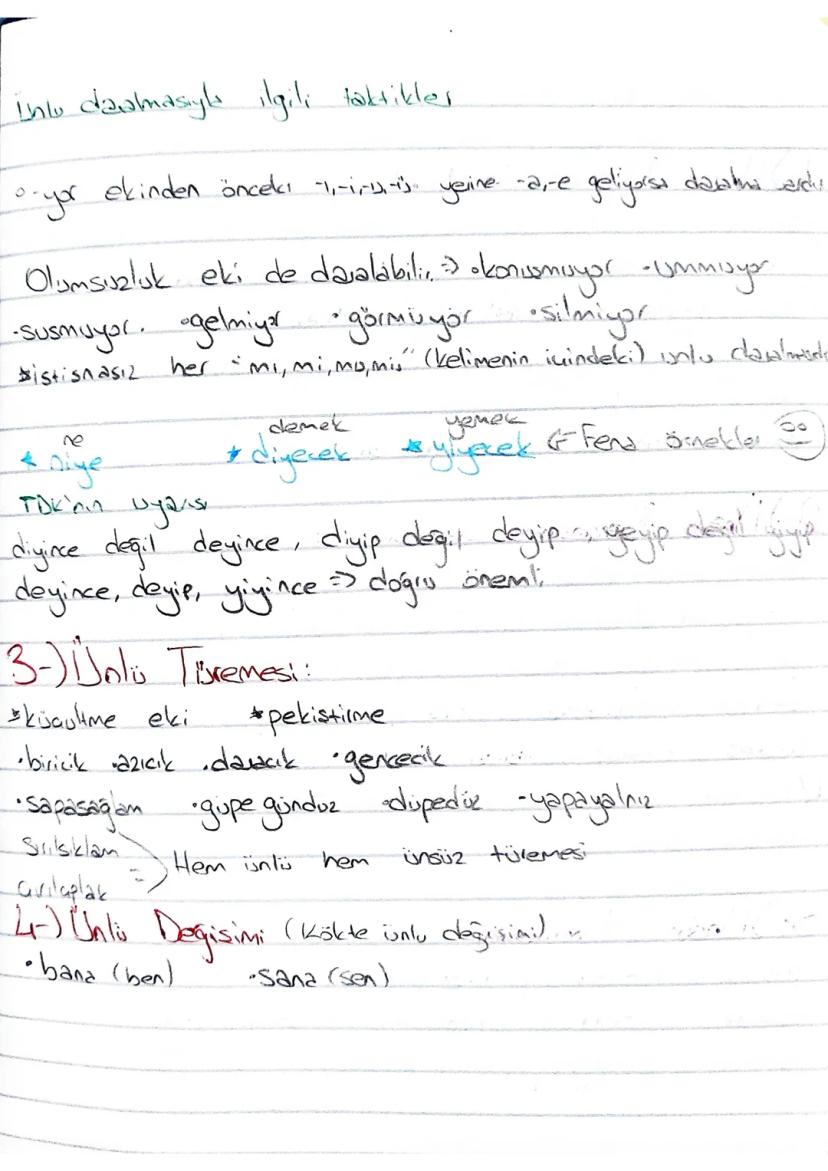 Ünlü daralmasıyla ilgili taktikler
-yor ekinden önceki -ı,-i,-u,-ü yerine -a,-e geliyorsa daralma vardır
Olumsuzluk eki de daralabilir. => •konuşmuyor •ummuyor
•susmuyor. •gelmiyor •görmüyor •silmiyor
*istisnasız her "mı, mi, mu, mü" (kelimenin içindeki) ünlü daralmasıdır
ne demek yemek
* niye * diyecek * yiyecek <= Fena örnekler
TDK'nın uyarısı
diyince değil deyince, diyip değil deyip, yeyip değil yiyip
deyince, deyip, yiyince => doğru önemli
3-) Ünlü Türemesi:
*küçültme eki *pekiştirme
•biricik •azıcık •daracık •gencecik
•sapasağlam •güpegündüz •düpedüz -yapayalnız
Sırılsıklam
=> Hem ünlü hem ünsüz türemesi
Çırılçıplak
4-) Ünlü Değişimi (Kökte ünlü değişimi)
•bana (ben) •sana (sen)